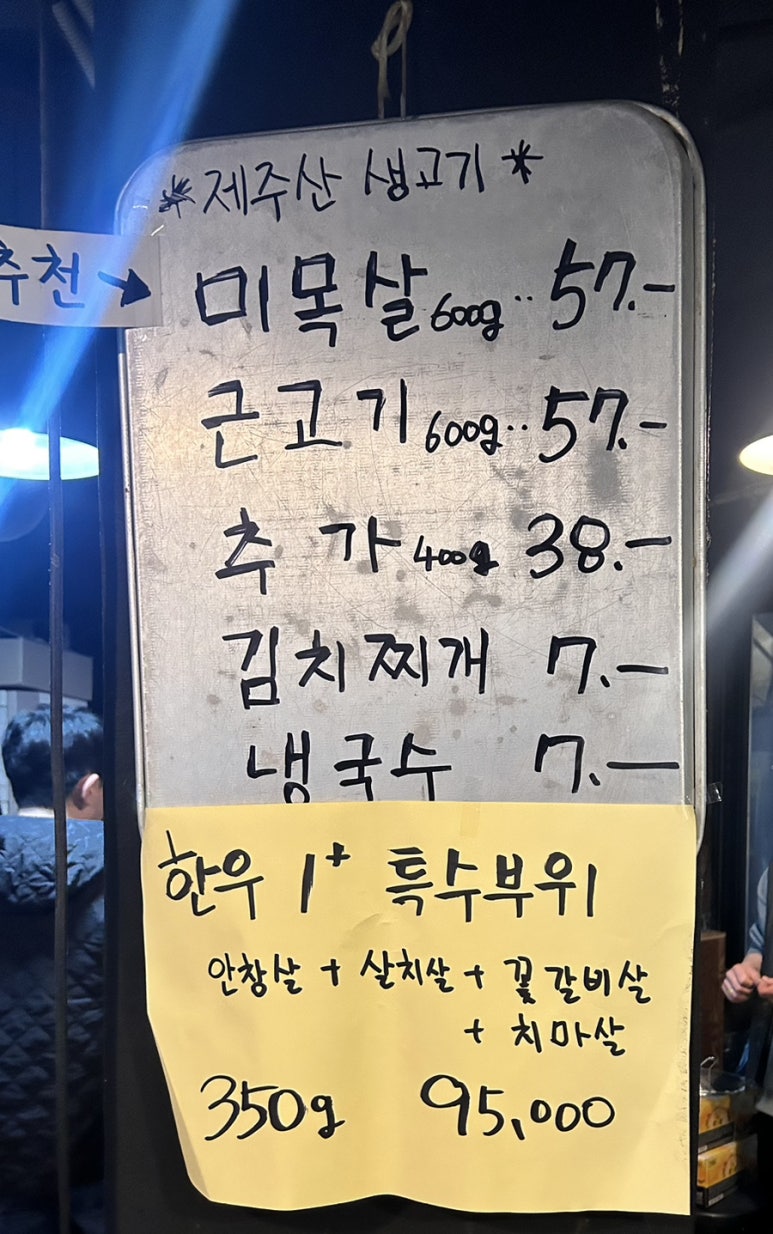 *제주산 생고기*
추천→
미목살 600g.. 57.-
근고기 600g.. 57.-
추가 400g 38.-
김치찌개 7.-
냉국수 7.-
한우 1+ 특수부위
안창살 + 살치살 + 꽃갈비살
+ 치마살
350g 95,000